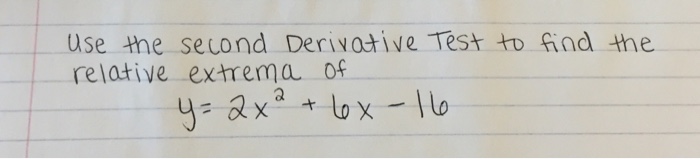 Use the second Derivative Test to find the
relative extrema of
y = 2x² + 6x - 16